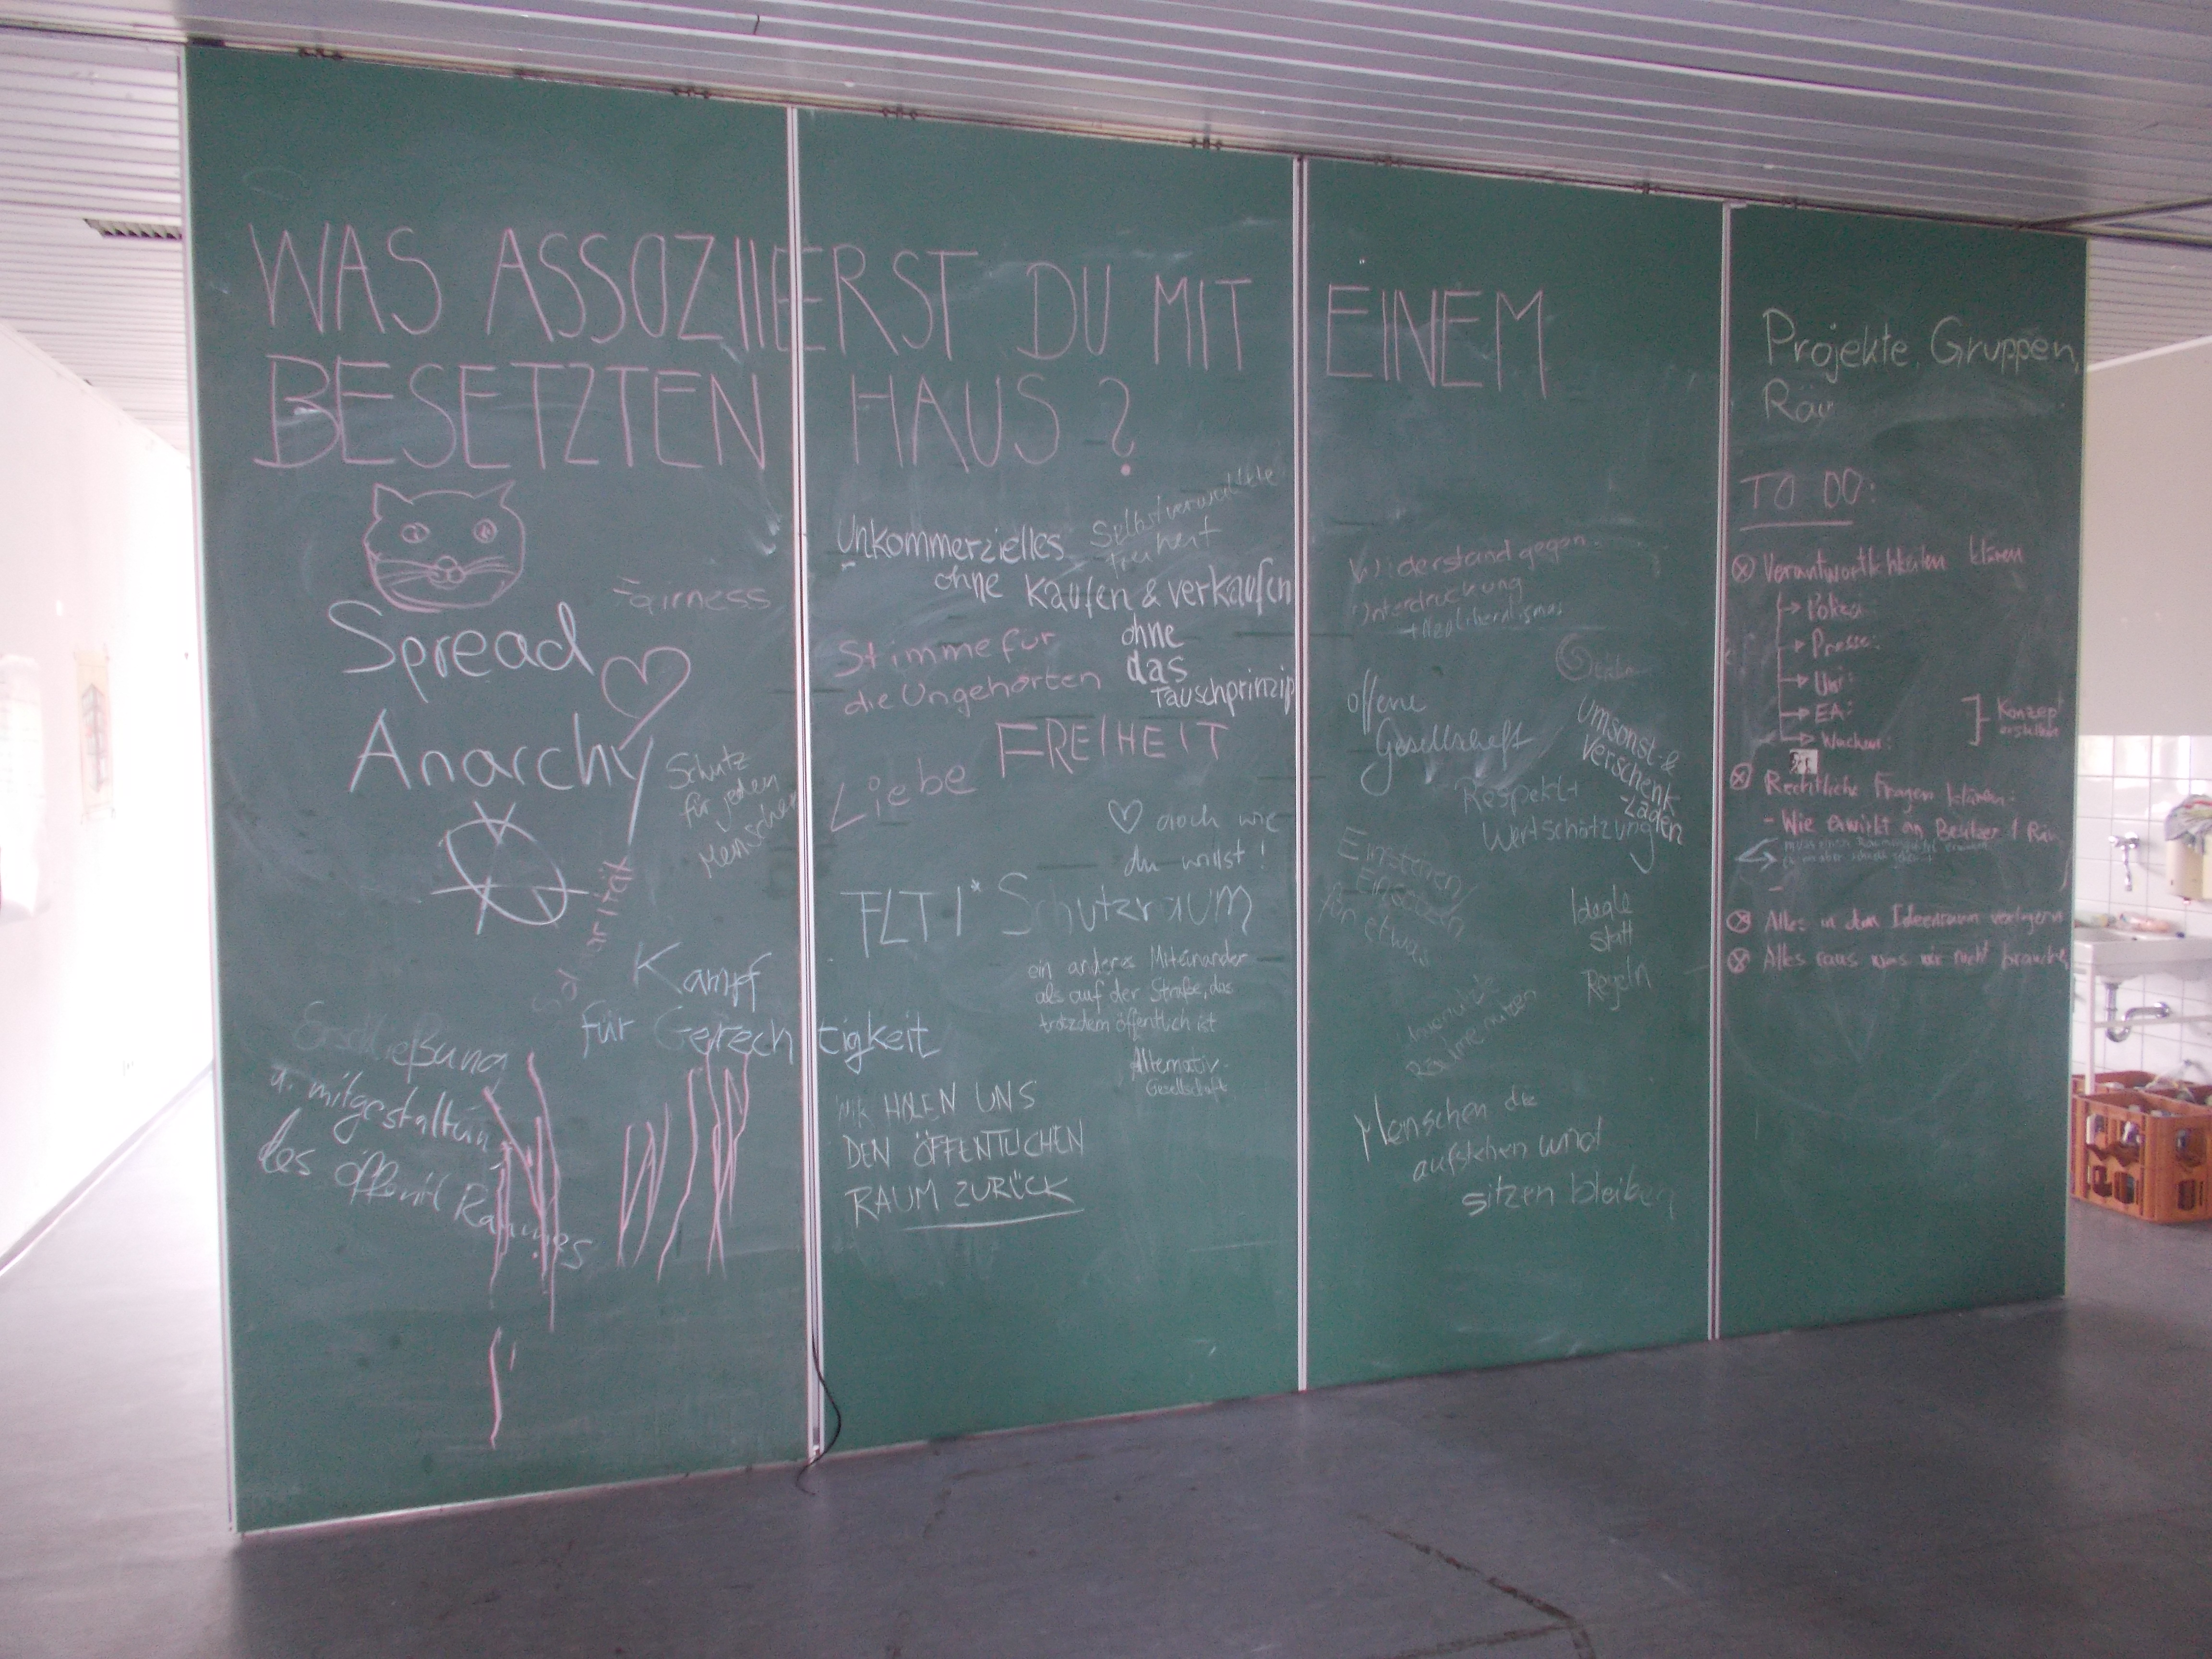 WAS ASSOZIIERST DU MIT EINEM
BESETZTEN HAUS?
Fairness
Spread
Anarchy
Schutz
für jeden
Menschen
Solidarität
Kampf
für Gerechtigkeit
Erschließung
u. mitgestaltung
des öffentl Raumes
Unkommerzielles
Selbstverwaltete
freiheit
ohne Kaufen & verkaufen
ohne
das
Tauschprinzip
Stimme für
die Ungehörten
FREIHEIT
Liebe
♡ doch wie
du willst!
FLTI* Schutzraum
ein anderes Miteinander
als auf der Straße, das
trotzdem öffentlich ist
Alternativ-
Gesellschaft
WIR HOLEN UNS
DEN ÖFFENTLICHEN
RAUM ZURÜCK
Widerstand gegen
Unterdrückung
+Neoliberalismus
offene
Gesellschaft
Umsonst-&
Verschenk
-Läden
Respekt+
Wertschätzung
Einstehen/
für etwas
Ideale
statt
Regeln
Räume nutzen
Menschen die
aufstehen und
sitzen bleiben
Projekte, Gruppen,
Räu
TO DO:
Verantwortlichkeiten klären
Polizei:
Presse:
Uni:
EA:
Wachen:
Konzept
erstellen
Rechtliche Fragen klären:
- Wie erwirkt ein Besitzer 1 Räu
Alles in den Ideenraum verlagern
Alles raus was wir nicht brauchen